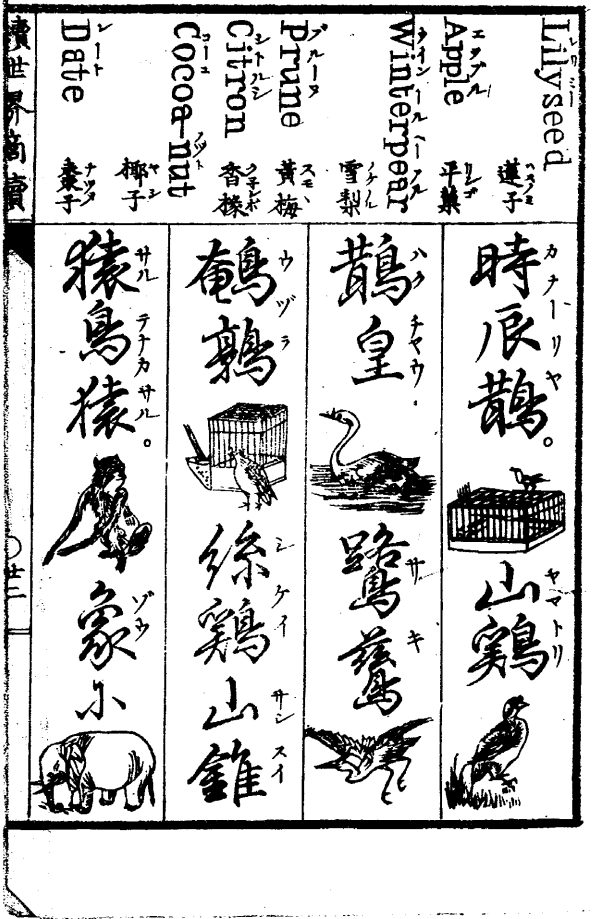 Lilyseed
レリシー
蓮子
ハスノミ
Apple
エププル
平菓
リンゴ
Winterpear
ウインールペーアル
雪梨
Prune
プルーヌ
黄梅
スモヽ
Citron
シトルン
香櫞
Cocoa-nut
コーコ ノット
椰子
ヤシ
Date
シート
棗子
ナツメ
時辰鵲。
カナーリヤ
山鶏
ヤマトリ
鵲皇
ハクチヤウ.
鷺鷥
サキ
鵪鶉
ウヅラ
絲鶏
シケイ
山雞
サンスイ
猿鳥猿。
サルテナカサル
象小
ゾウ
續世界商賣
〇廿二